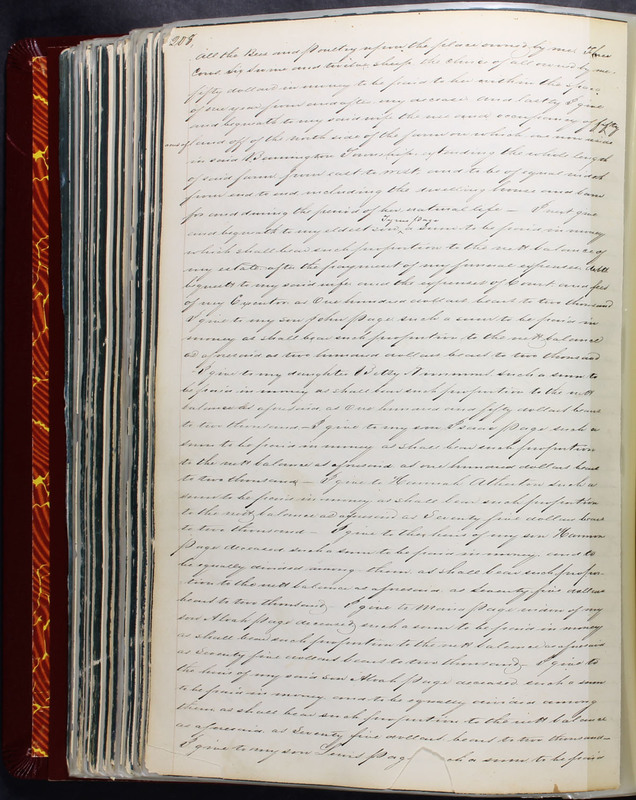 208
All the Bees and Poultry upon the place owned by me Three
Cows six swine and twelve sheep the choice of all owned by me
fifty dollars in money to be paid to her within the space
of one year from and after my decease and lastly I give
and bequeath to my said wife the use and occupancy of 157
acres of land off of the north side of the farm on which we now reside
in said Township extending the whole length
of said farm from east to west and to be of equal width
from end to end including the dwelling house and barn
for and during the period of her natural life — I next give
and bequeath to my eldest son Page a sum to be paid in money
which shall bear such proportion to the nett balance of
my estate after the payment of my funeral expenses debts
bequests to my said wife and the expenses of Court and fees
of my Executor as One hundred dollars bears to two thousand
I give to my son John Page such a sum to be paid in
money as shall bear such proportion to the nett balance
as aforesaid as two hundred dollars bears to two thousand
I give to my daughter Betsy such a sum to
be paid in money as shall bear such proportion to the nett
balance as aforesaid as One hundred and fifty dollars bears
to two thousand — I give to my son Isaac Page such a
sum to be paid in money as shall bear such proportion
to the nett balance as aforesaid as one hundred dollars bears
to two thousand — I give to Hannah Atherton such a
sum to be paid in money as shall bear such proportion
to the nett balance as aforesaid as Seventy five dollars bears
to two thousand — I give to the heirs of my son Harmon
Page deceased such a sum to be paid in money and to
be equally divided among them as shall bear such propor-
tion to the nett balance as aforesaid as Seventy five dollars
bears to two thousand — I give to Maria Page widow of my
son Abiah Page deceased such a sum to be paid in money
as shall bear such proportion to the nett balance as aforesaid
as Seventy five dollars bears to two thousand — I give to
the heirs of my said son Abiah Page deceased such a sum
to be paid in money and to be equally divided among
them as shall bear such proportion to the nett balance
as aforesaid as Seventy five dollars bears to two thousand —
I give to my son Lewis Page such a sum to be paid